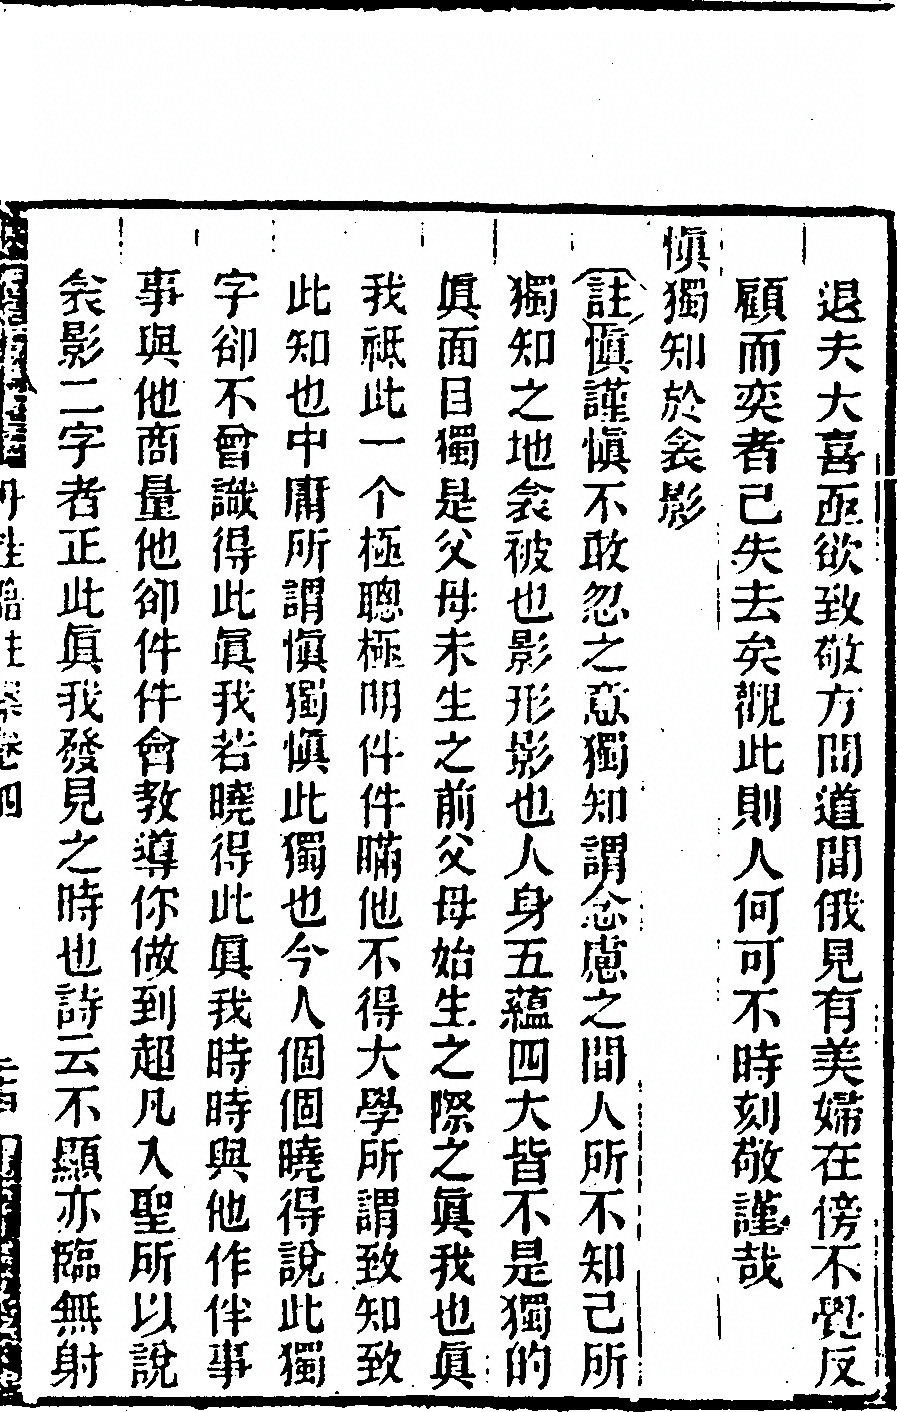 退夫大喜亟欲致敬方問道間俄見有美婦在傍不覺反
顧而奕者己失去矣觀此則人何可不時刻敬謹哉
愼獨知於衾影
註愼謹愼不敢忽之意獨知謂念慮之間人所不知己所
獨知之地衾被也影形影也人身五蘊四大皆不是獨的
眞面目獨是父母未生之前父母始生之際之眞我也眞
我祗此一个極聰極明件件瞞他不得大學所謂致知致
此知也中庸所謂愼獨愼此獨也今人個個曉得說此獨
字卻不曾識得此眞我若曉得此眞我時時與他作伴事
事與他商量他卻件件會教導你做到超凡入聖所以說
衾影二字者正此眞我發見之時也詩云不顯亦臨無射